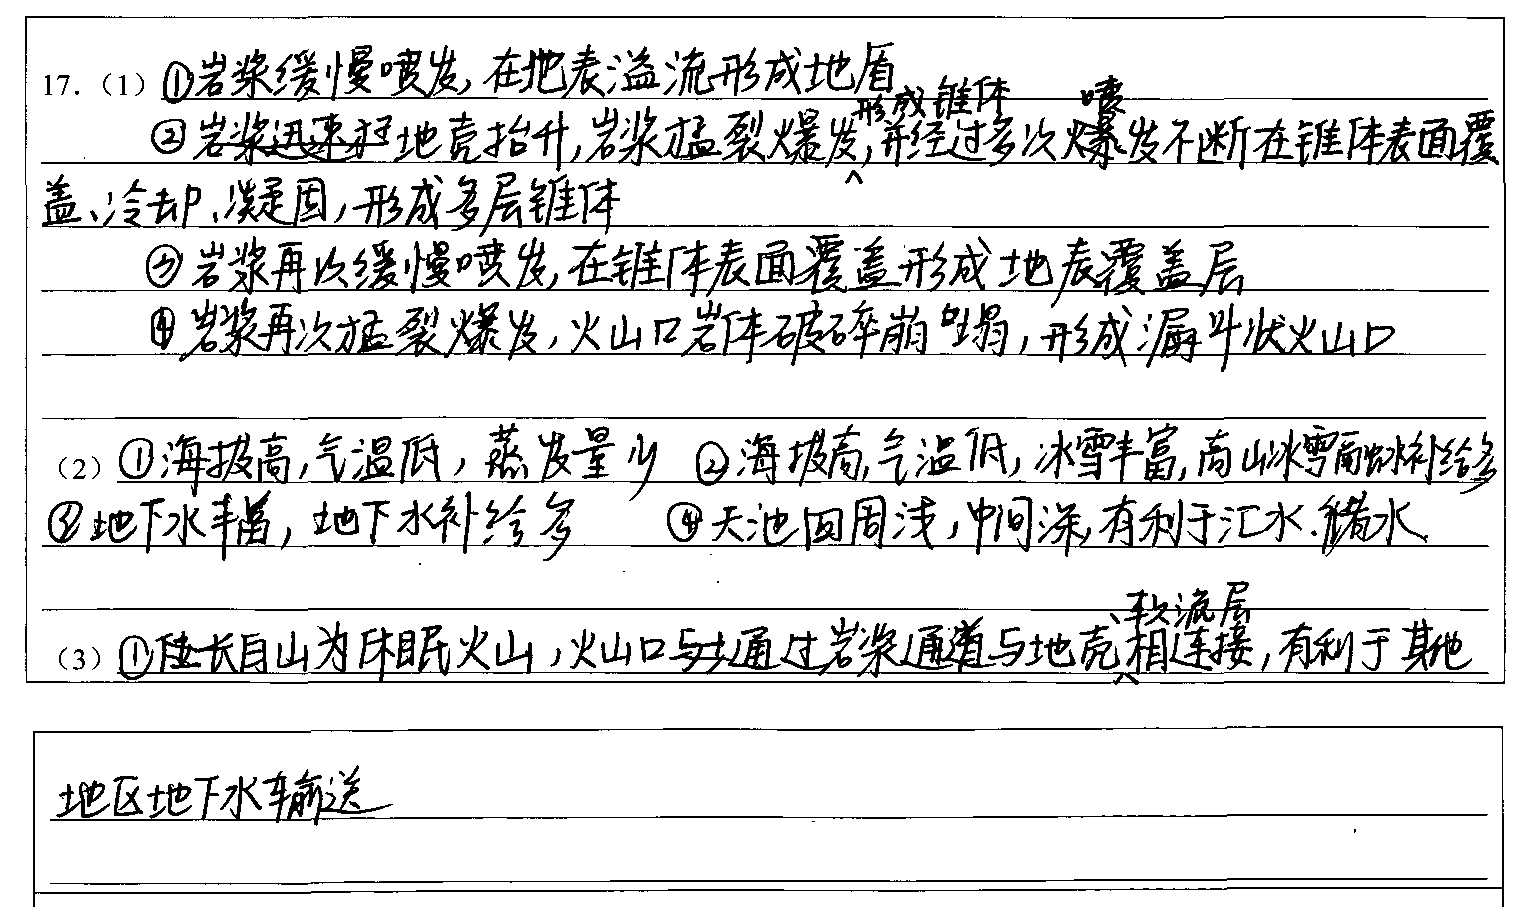 17.（1）①岩浆缓慢喷发,在地表溢流形成地盾
②地壳抬升,岩浆猛裂爆发形成锥体,并经过多次喷发不断在锥体表面覆
盖、冷却、凝固,形成多层锥体
③岩浆再次缓慢喷发,在锥体表面覆盖形成地表覆盖层
④岩浆再次猛裂爆发,火山口岩体破碎崩塌,形成漏斗状火山口
（2）①海拔高,气温低,蒸发量少 ②海拔高,气温低,冰雪丰富,高山冰雪融水补给多
③地下水丰富,地下水补给多 ④天池四周浅,中间深,有利于汇水、储水
（3）①长白山为休眠火山,火山口通过岩浆通道与地壳、软流层相连接,有利于其他
地区地下水输送